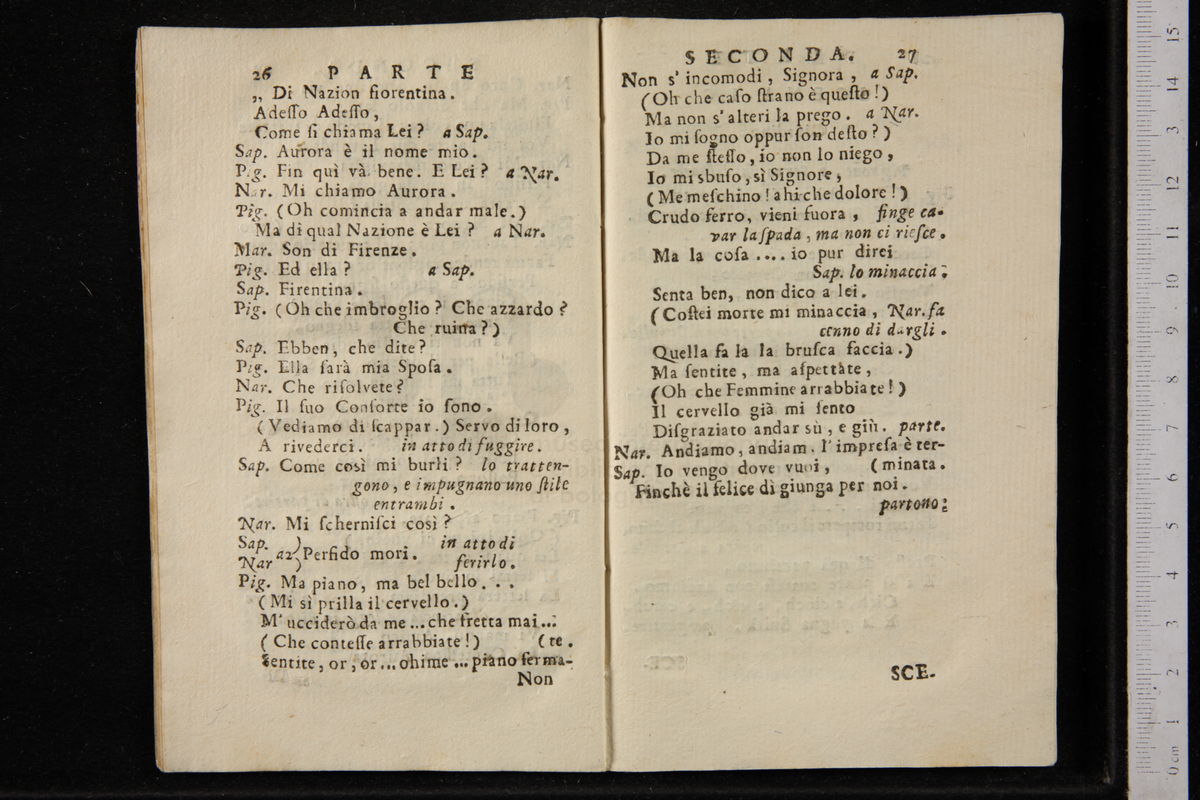 26 PARTE
„ Di Nazion fiorentina.
Adeſſo Adeſſo,
Come ſi chiama Lei? a Sap.
Sap. Aurora è il nome mio.
Pig. Fin quì và bene. E Lei? a Nar.
Nar. Mi chiamo Aurora.
Pig. (Oh comincia a andar male.)
Ma di qual Nazione è Lei? a Nar.
Mar. Son di Firenze.
Pig. Ed ella? a Sap.
Sap. Firentina.
Pig. (Oh che imbroglio? Che azzardo?
Che ruina?)
Sap. Ebben, che dite?
Pig. Ella ſarà mia Spoſa.
Nar. Che riſolvete?
Pig. Il ſuo Conſorte io ſono.
(Vediamo di ſcappar.) Servo di loro,
A rivederci. in atto di fuggire.
Sap. Come così mi burli? lo tratten-
gono, e impugnano uno ſtile
entrambi.
Nar. Mi ſcherniſci così?
Sap. ) in atto di
a2 Perfido mori.
Nar ) ferirlo.
Pig. Ma piano, ma bel bello...
(Mi sì prilla il cervello.)
M'ucciderò da me ... che fretta mai...
(Che conteſſe arrabbiate!) (te.
Sentite, or, or... ohime ... piano ferma-
Non
SECONDA. 27
Non s'incomodi, Signora, a Sap.
(Oh che caſo ſtrano è queſto!)
Ma non s'alteri la prego. a Nar.
Io mi ſogno oppur ſon deſto?)
Da me ſteſſo, io non lo niego,
Io mi sbuſo, sì Signore,
(Me meſchino! ahi che dolore!)
Crudo ferro, vieni fuora, finge ca-
var la ſpada, ma non ci rieſce.
Ma la coſa .... io pur direi
Sap. lo minaccia.
Senta ben, non dico a lei.
(Coſtei morte mi minaccia, Nar. fa
cenno di dargli.
Quella fa la la bruſca faccia.)
Ma ſentite, ma aſpettate,
(Oh che Femmine arrabbiate!)
Il cervello già mi ſento
Diſgraziato andar sù, e giù. parte.
Nar. Andiamo, andiam. l'impreſa è ter-
Sap. Io vengo dove vuoi, (minata.
Finchè il felice dì giunga per noi.
partono:
SCE-
0 cm 1 2 3 4 5 6 7 8 9 10 11 12 13 14 15